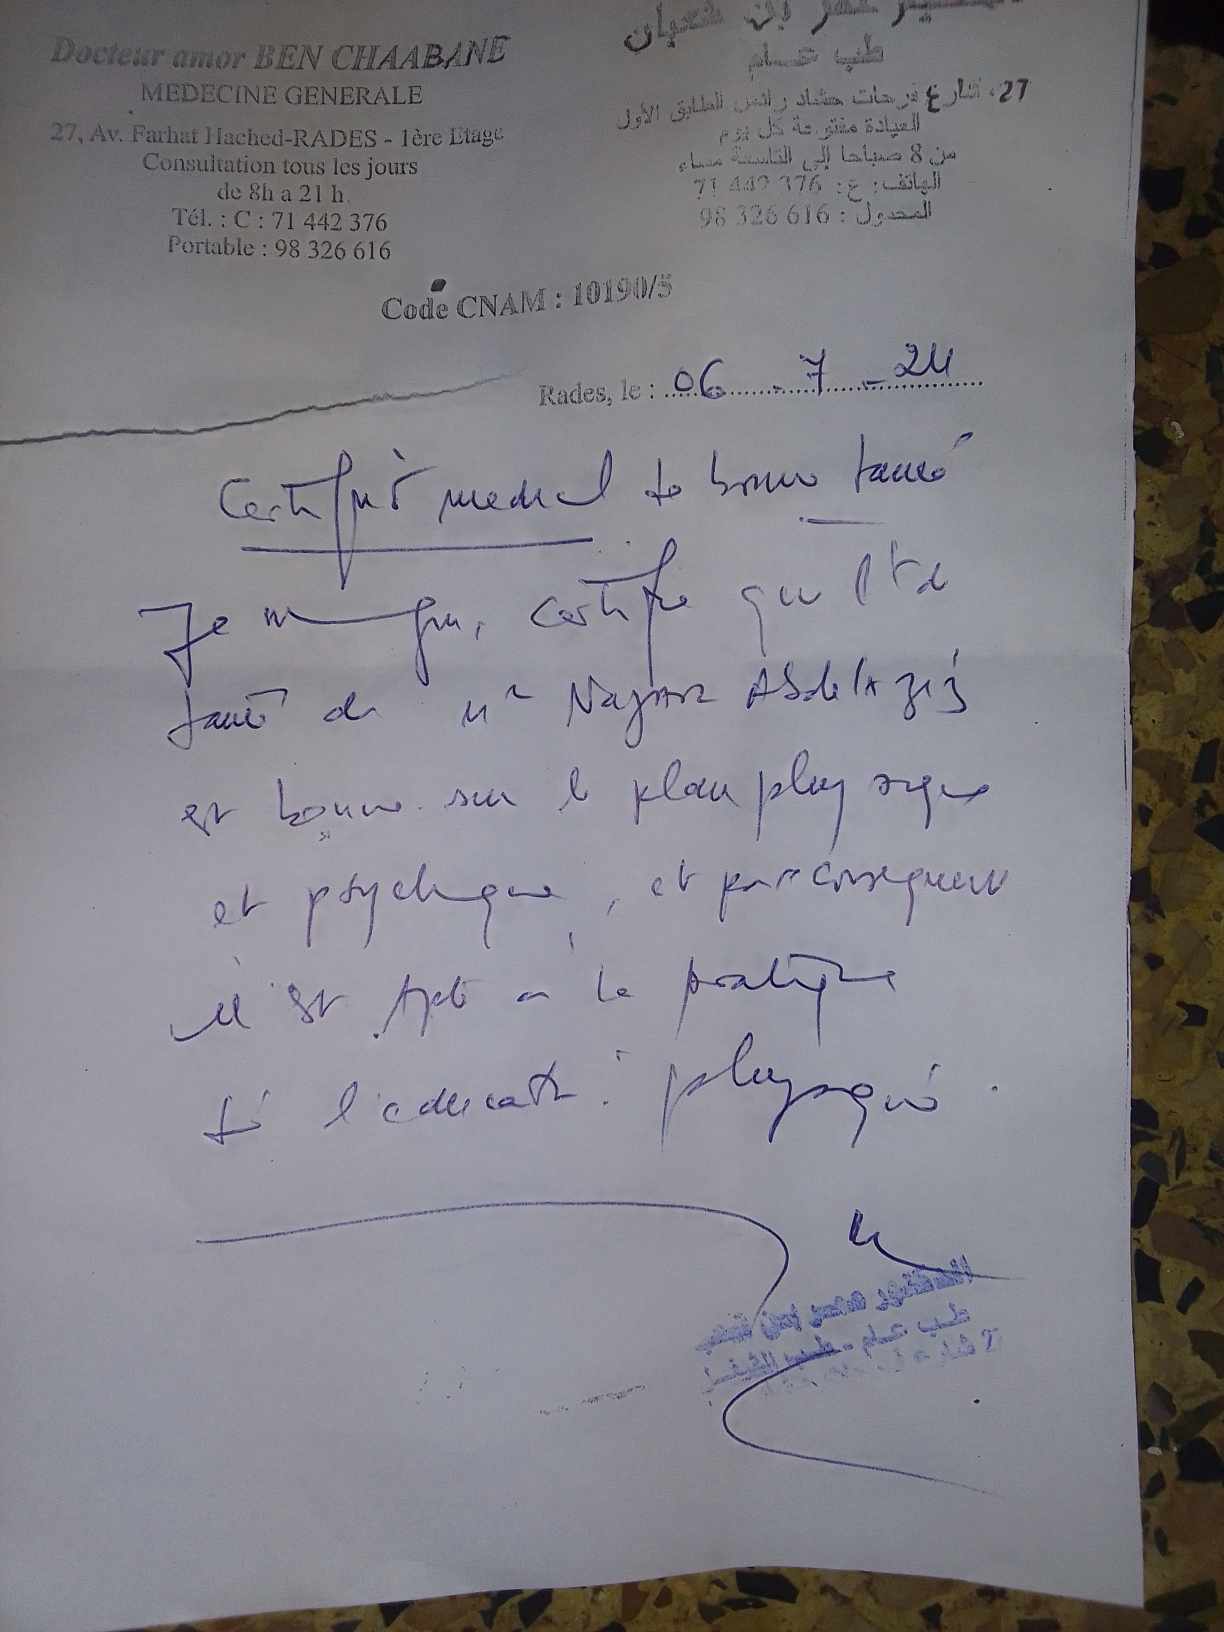 Docteur amor BEN CHAABANE
MEDECINE GENERALE
27, Av. Farhat Hached-RADES - 1ère Etage
Consultation tous les jours
de 8h a 21 h
Tél. : C : 71 442 376
Portable : 98 326 616
عمر بن شعبان
طب عـــام
27، شارع فرحات حشاد رادس الطابق الأول
العيادة مفتوحة كل يوم
من 8 صباحا إلى التاسعة مساء
الهاتف: ع: 71 442 376
المحمول : 98 326 616
Code CNAM : 10190/5
Rades, le : 06 - 7 - 24
Certificat medical de bonne santé
Je certifie que l'etat de
santé de Mr Najjar Abdelaziz
est bonne sur le plan physique
et psychique, et par consequent
il est Apte à la pratique
de l'education physique.
الدكتور عمر بن
طب عام - طب
27 شارع